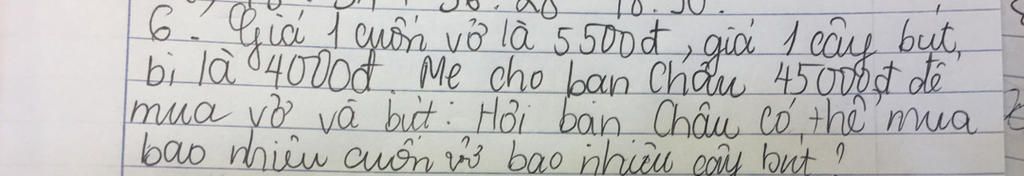 6. Giá 1 cuốn vở là 5500đ, giá 1 cây bút
bi là 4000đ. Mẹ cho bạn Châu 45000đ để
mua vở và bút. Hỏi bạn Châu có thể mua
bao nhiêu cuốn vở bao nhiêu cây bút?